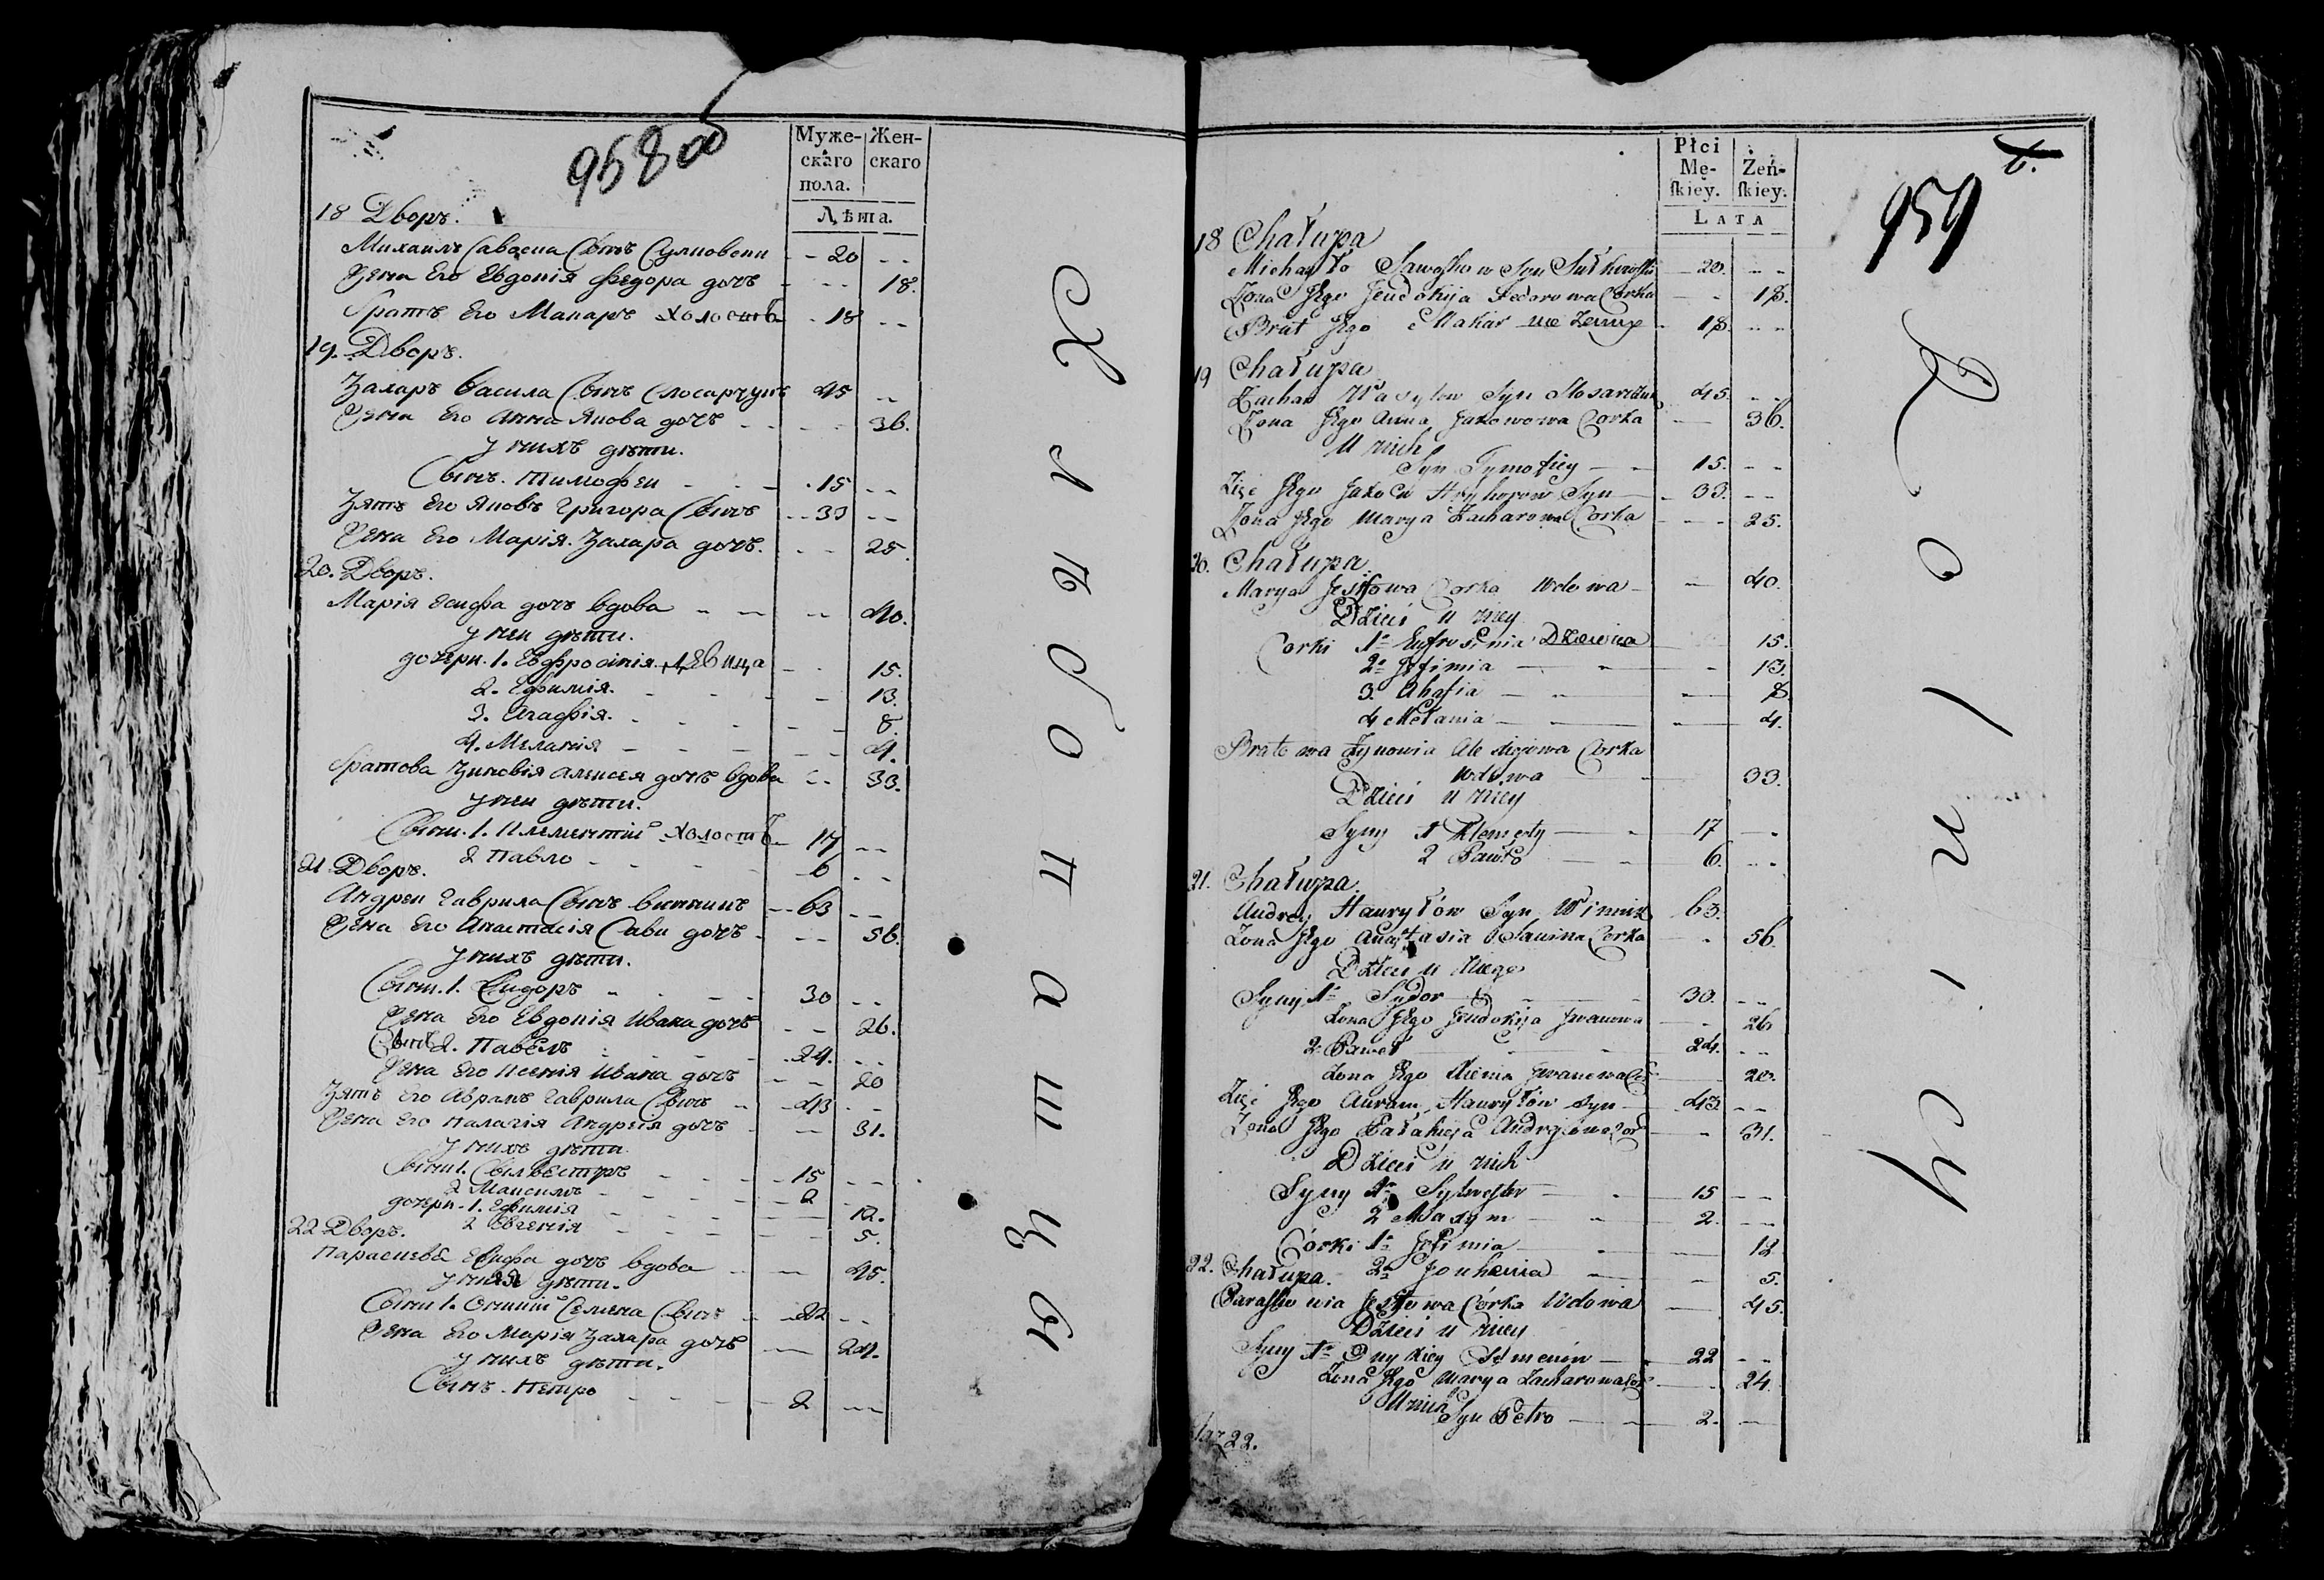 958 об
Муже-
скаго
пола.
Жен-
скаго
Лѣта.
18 Дворъ.
Михаилъ Саваска Сынъ - - 20 - -
Жена Его Евдокія Федора дочь - - - 18.
братъ Его Макаръ холостъ - 18 - -
19. Дворъ.
Захаръ Васила Сынъ Слюсарчукъ 45 - -
Жена Его Анна Якова дочь - - - 36.
у нихъ дѣти.
Сынъ. Тимофей - - - 15 - -
Зять Его Яковъ Григора Сынъ - - 33 - -
Жена Его Марія Захара дочь. - - - 25.
20. Дворъ.
Марія Осифа дочь вдова - - - 40.
у ней дѣти.
дочери. 1. Евфросинія. дѣвица - - 15.
2. Ефимія. - - - - 13.
3. Агафія. - - - - 8.
4. Меланія - - - - 4.
братова Зиновія Алексея дочь вдова - - 33.
у ней дѣти.
Сыни. 1. Клементій холостъ - 17 - -
2 Павло - - - 6 - -
21 Дворъ.
Андрей Гаврила Сынъ Винникъ - - 63 - -
Жена Его Анастасія Сави дочь - - - 56.
у нихъ дѣти.
Сыни. 1. Сидоръ - - - 30 - -
Жена Его Евдокія Ивана дочь - - 26.
Сынъ 2. Павелъ - - - 24. - -
Жена Его Ксенія Ивана дочь - - 20
Зять Его Аврамъ Гаврила Сынъ - - 43 - -
Жена Его Палагія Андрея дочь - - 31.
у нихъ дѣти
Сыни 1. Сылвестръ - - - 15 - -
2 Максимъ - - - 2 - -
дочери. 1. Ефимія - - - 12.
2 Евгенія - - - 5.
22 Дворъ.
Параскева Осифа дочь вдова - - 45.
у нихъ дѣти.
Сыни 1. Семена Сынъ - - 22 - -
Жена Его Марія Захара дочь - - 24.
у нихъ дѣти.
Сынъ. Петро - - - 2 - -
Хлѣбопашцы
Płci
Mę-
ſkiey.
Żeń-
ſkiey.
LATA
959
18 Chałupa
Michayło Sawaſkow Syn - 20. - -
Zona Jego Jeudokija Fedorowa Corka - - 18.
Brat Jego Makar nie Zenny - 18. - -
19 Chałupa
Zachar Wasylow Syn Slosarczuk 45. - -
Zona Jego Anna Jakowowa Corka - 36.
U nich
Syn Tymofiey - - 15. - -
Zięć Jego Jakow Hryhorow Syn - 33. - -
Zona Jego Marya Zacharowa Corka - - - 25.
20. Chałupa
Marya Corka Wdowa - - 40.
Dzieci u niey
Corki 1e Eufrosinia Dziewica 15.
2e Jefimia - - - 13.
3. Ahafia - - - 8
4 Mełania - - - 4.
Bratowa Zynowia Corka
wdowa - 33.
Dzieci u niey
Syny 1 Klementy - - 17 - -
2 Pawło - - 6. - -
21. Chałupa
Andrey Hauryłów Syn Winnik 63.
Zona Jego Anastasia Sawina Corka - 56
Dzieci u niego
Syny 1e Sydor - - 30. - -
Zona Jego Jeudokija Jwanowa - 26
2e Paweł - - 24. - -
Zona Jego Xienia Jwanowa Cor - 20.
Zięć Jego Auram Hauryłów Syn - 43 - -
Zona Jego Pałahija Cor - 31.
Dzieci u nich
Syny 1e Sylwester - - 15 - -
2 Maxym - - 2. - -
Córki 1e Jefimia - - 12
22. Chałupa. 2e Jouhenia - - 5.
Paraſkowia Córka Wdowa - 45.
Dzieci u niey
Syny 1e Semenów - 22 - -
Zona Jego Marya Zacharowa Cor - 24.
U nich
Syn Petro - - 2. - -
22.
Rolnicy